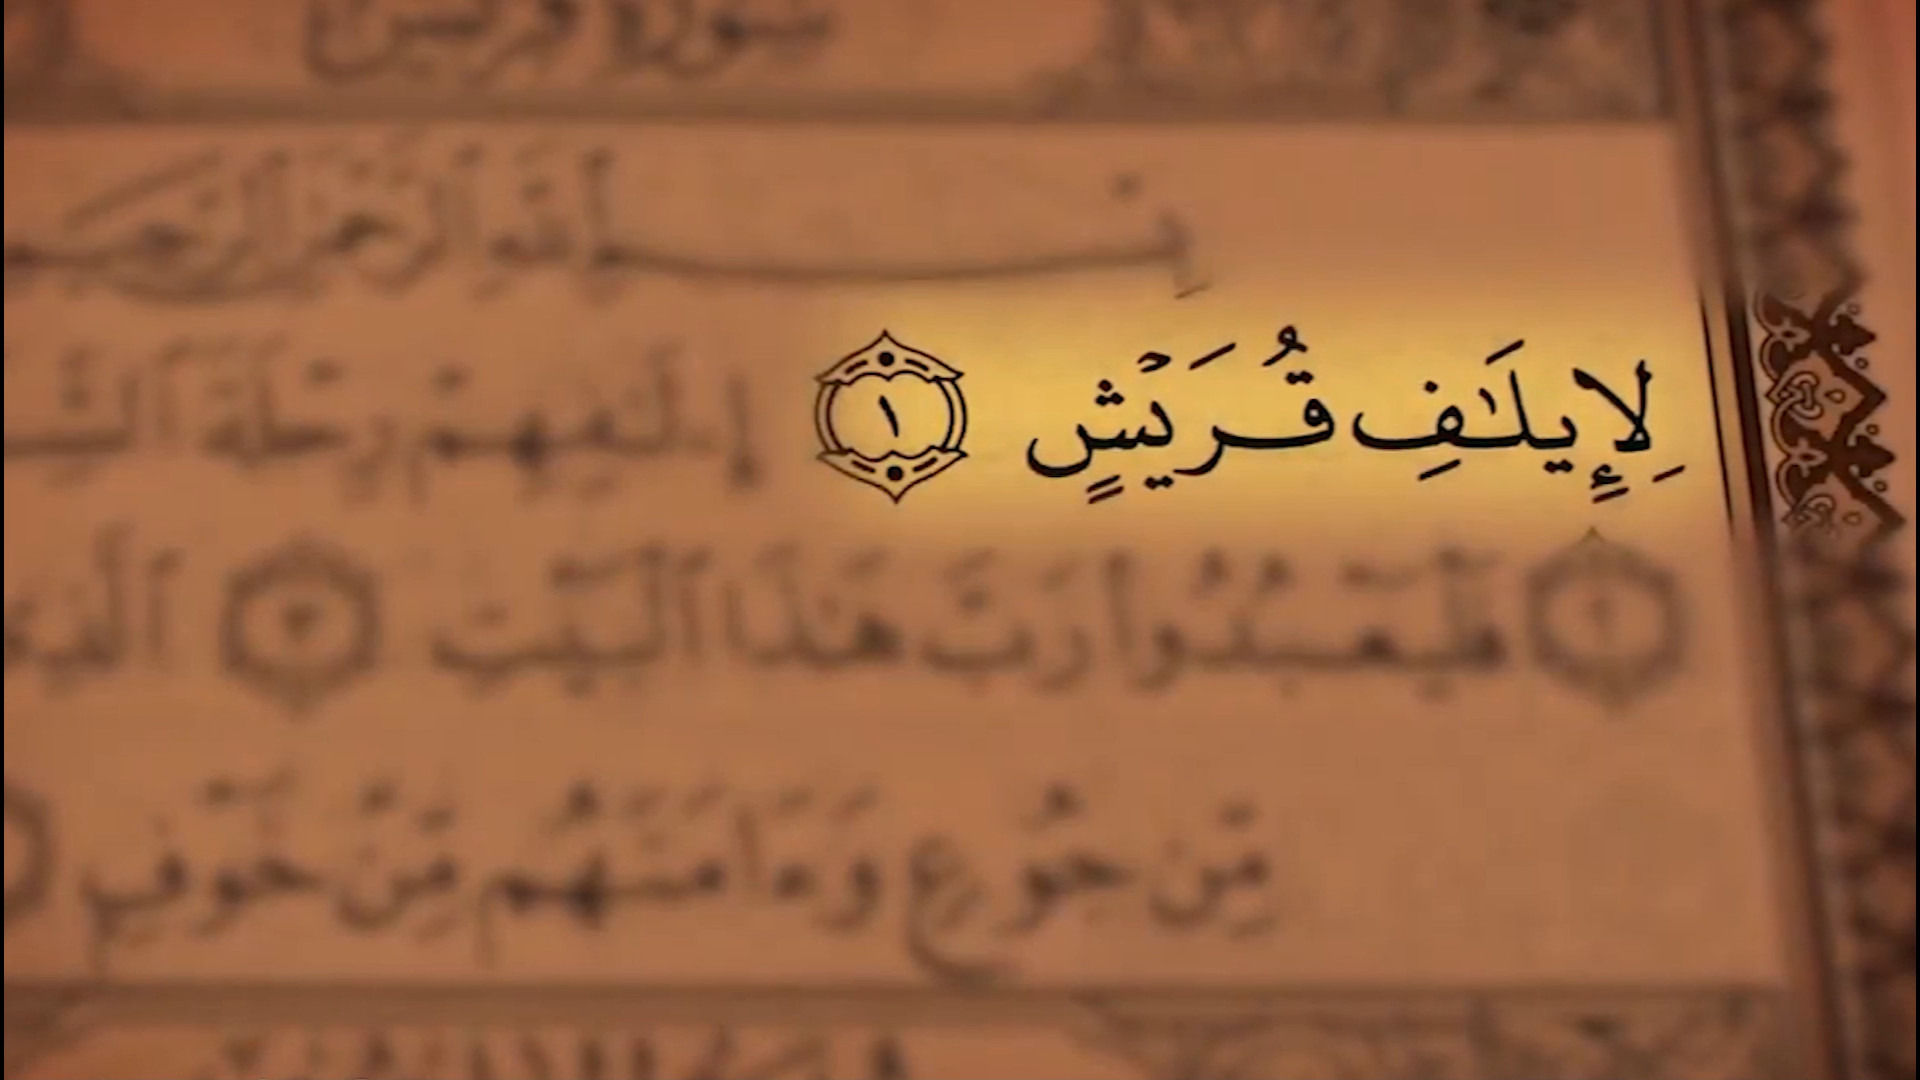 سورة قريش
بسم الله الرحمن الرحيم
لِإِيلَٰفِ قُرَيْشٍ ١ إِۦلَٰفِهِمْ رِحْلَةَ
٢ فَلْيَعْبُدُوا۟ رَبَّ هَٰذَا ٱلْبَيْتِ ٣
مِّن جُوعٍ وَءَامَنَهُم مِّنْ خَوْفٍۭ